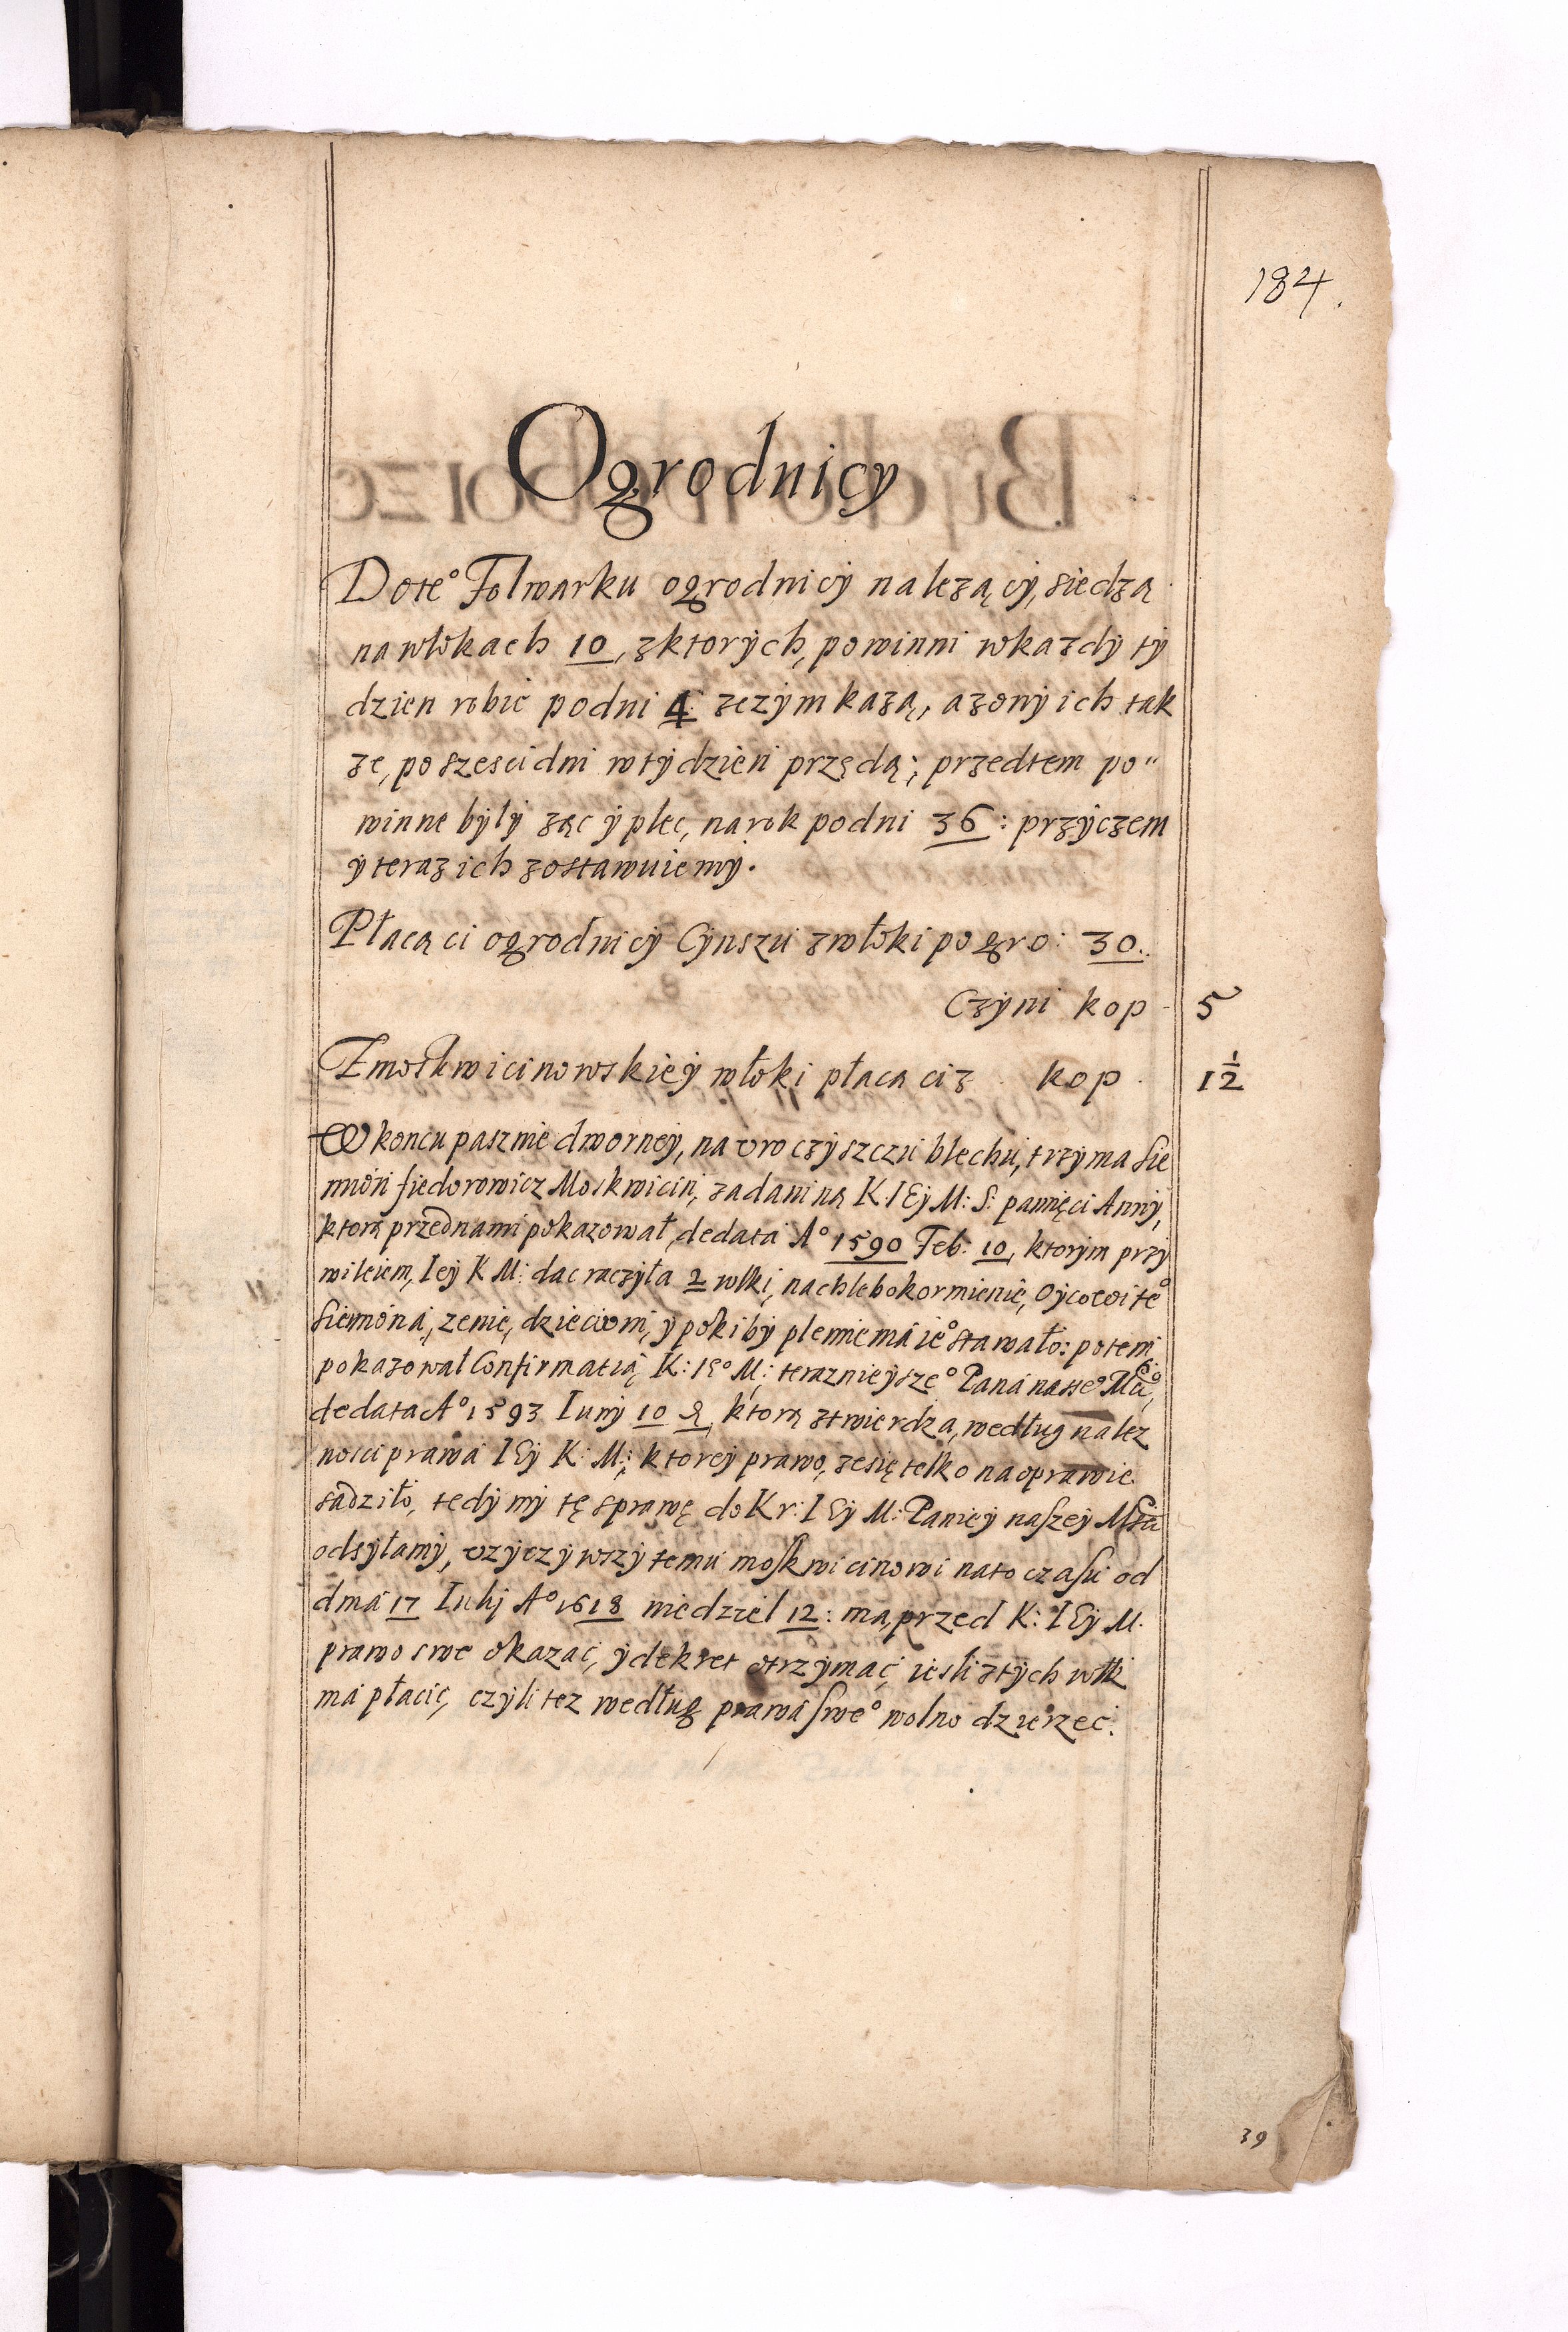 184.
Ogrodnicy
Do te° Folwarku ogrodnicy nalezący, siedzą
na włokach 10, z ktorych, powinni w kazdy ty
dzien robic po dni 4 zczym kazą, a zony ich tak
ze, po szesci dni w tydzien przędą; przedtem po"
winne były ząc y plec, na rok po dni 36: przy czem
y teraz ich zostawuiemy.
Płacą ci ogrodnicy Cynszu z włoki po gro: 30.
Czyni kop - 5
Z moskwicinowskiey włoki płacą ciz kop. 1 1/2
W koncu pasznie dworney, na vroczyszczu blechu, trzyma Sie
mion fiedorowicz Moskwicin, za daniną K: IEy M: S: pamięci Anny,
ktorą przed nami pokazował, de data A° 1590 Feb: 10, ktorym przy
wileiem, Iey K M: dac raczyła 2 włki, na chlebokormienie, Oycowi te°
Siemona, zenie, dzieciom, y poki by plemienia ie° stawało: potem
pokazował Confirmatią K: Ie° M: teraznieysze° Pana nasze°
de data A° 1593 Iuny 10 ktorą ztwierdza, według nalez
nosci prawa IEy K: M: ktorey prawo, ze się telko na oprawie
sadziło, tedy my tę sprawę do Kr: IEy M: Paniey naszey
odsyłamy, vzyczywszy temu moskwicinowi na to czasu od
dnia 17 Iulij A° 1618 niedziel 12: ma, przed K: IEy M.
prawo swe okazac, y dekret otrzymac, iesli z tych włk
ma płacic, czyli tez według prawa swe° wolno dzierzec.
39